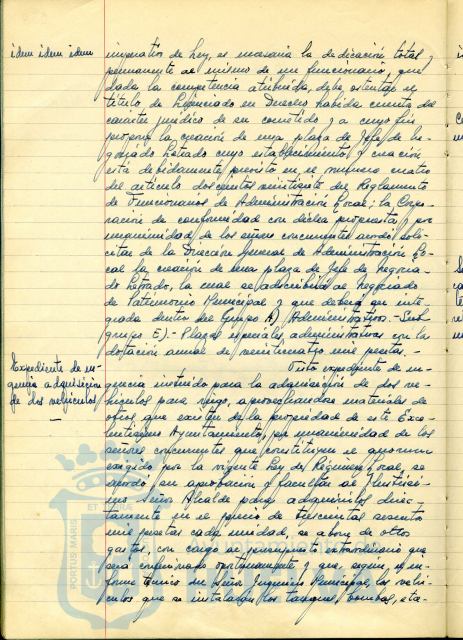 idem idem idem
imperativo de Ley, es necesaria la dedicación total y
permanente al mismo de un funcionario, que
dada la competencia atribuida, debe ostentar el
título de Licenciado en Derecho habida cuenta del
carácter jurídico de su cometido y a cuyo fin
propone la creación de una plaza de Jefe de Ne-
gociado Letrado cuyo establecimiento y creación
está debidamente previsto en el número cuatro
del artículo doscientos veintisiete del Reglamento
de Funcionarios de Administración Local; la Corpo-
ración de conformidad con dicha propuesta y por
unanimidad de los señores concurrentes acordó soli-
citar de la Dirección General de Administración Lo-
cal la creación de una plaza de Jefe de Negocia-
do Letrado, la cual se adscribirá al Negociado
de Patrimonio Municipal y que deberá ser inte-
grada dentro del Grupo A) Administrativos.- Sub-
grupo E).- Plazas especiales administrativas con la
dotación anual de veinticuatro mil pesetas. -
Expediente de ur-
gencia adquisición
de dos vehículos
Visto expediente de ur-
gencia instruido para la adquisición de dos ve-
hículos para riego, aprovechando materiales de
otros que existen de la propiedad de este Exce-
lentísimo Ayuntamiento, por unanimidad de los
señores concurrentes que constituyen el quorum
exigido por la vigente Ley de Régimen Local, se
acordó su aprobación y facultar al Ilustrísi-
mo Señor Alcalde para adquirirlos direc-
tamente en el precio de trescientas sesenta
mil pesetas cada unidad, se abone de otros
gastos, con cargo al presupuesto extraordinario que
será confeccionado oportunamente y que, según el in-
forme técnico del Señor Ingeniero Municipal, los vehí-
culos que se instalarán los tanques, bombas, eta-
ET
PORTUS MARIS
Ayuntamiento de